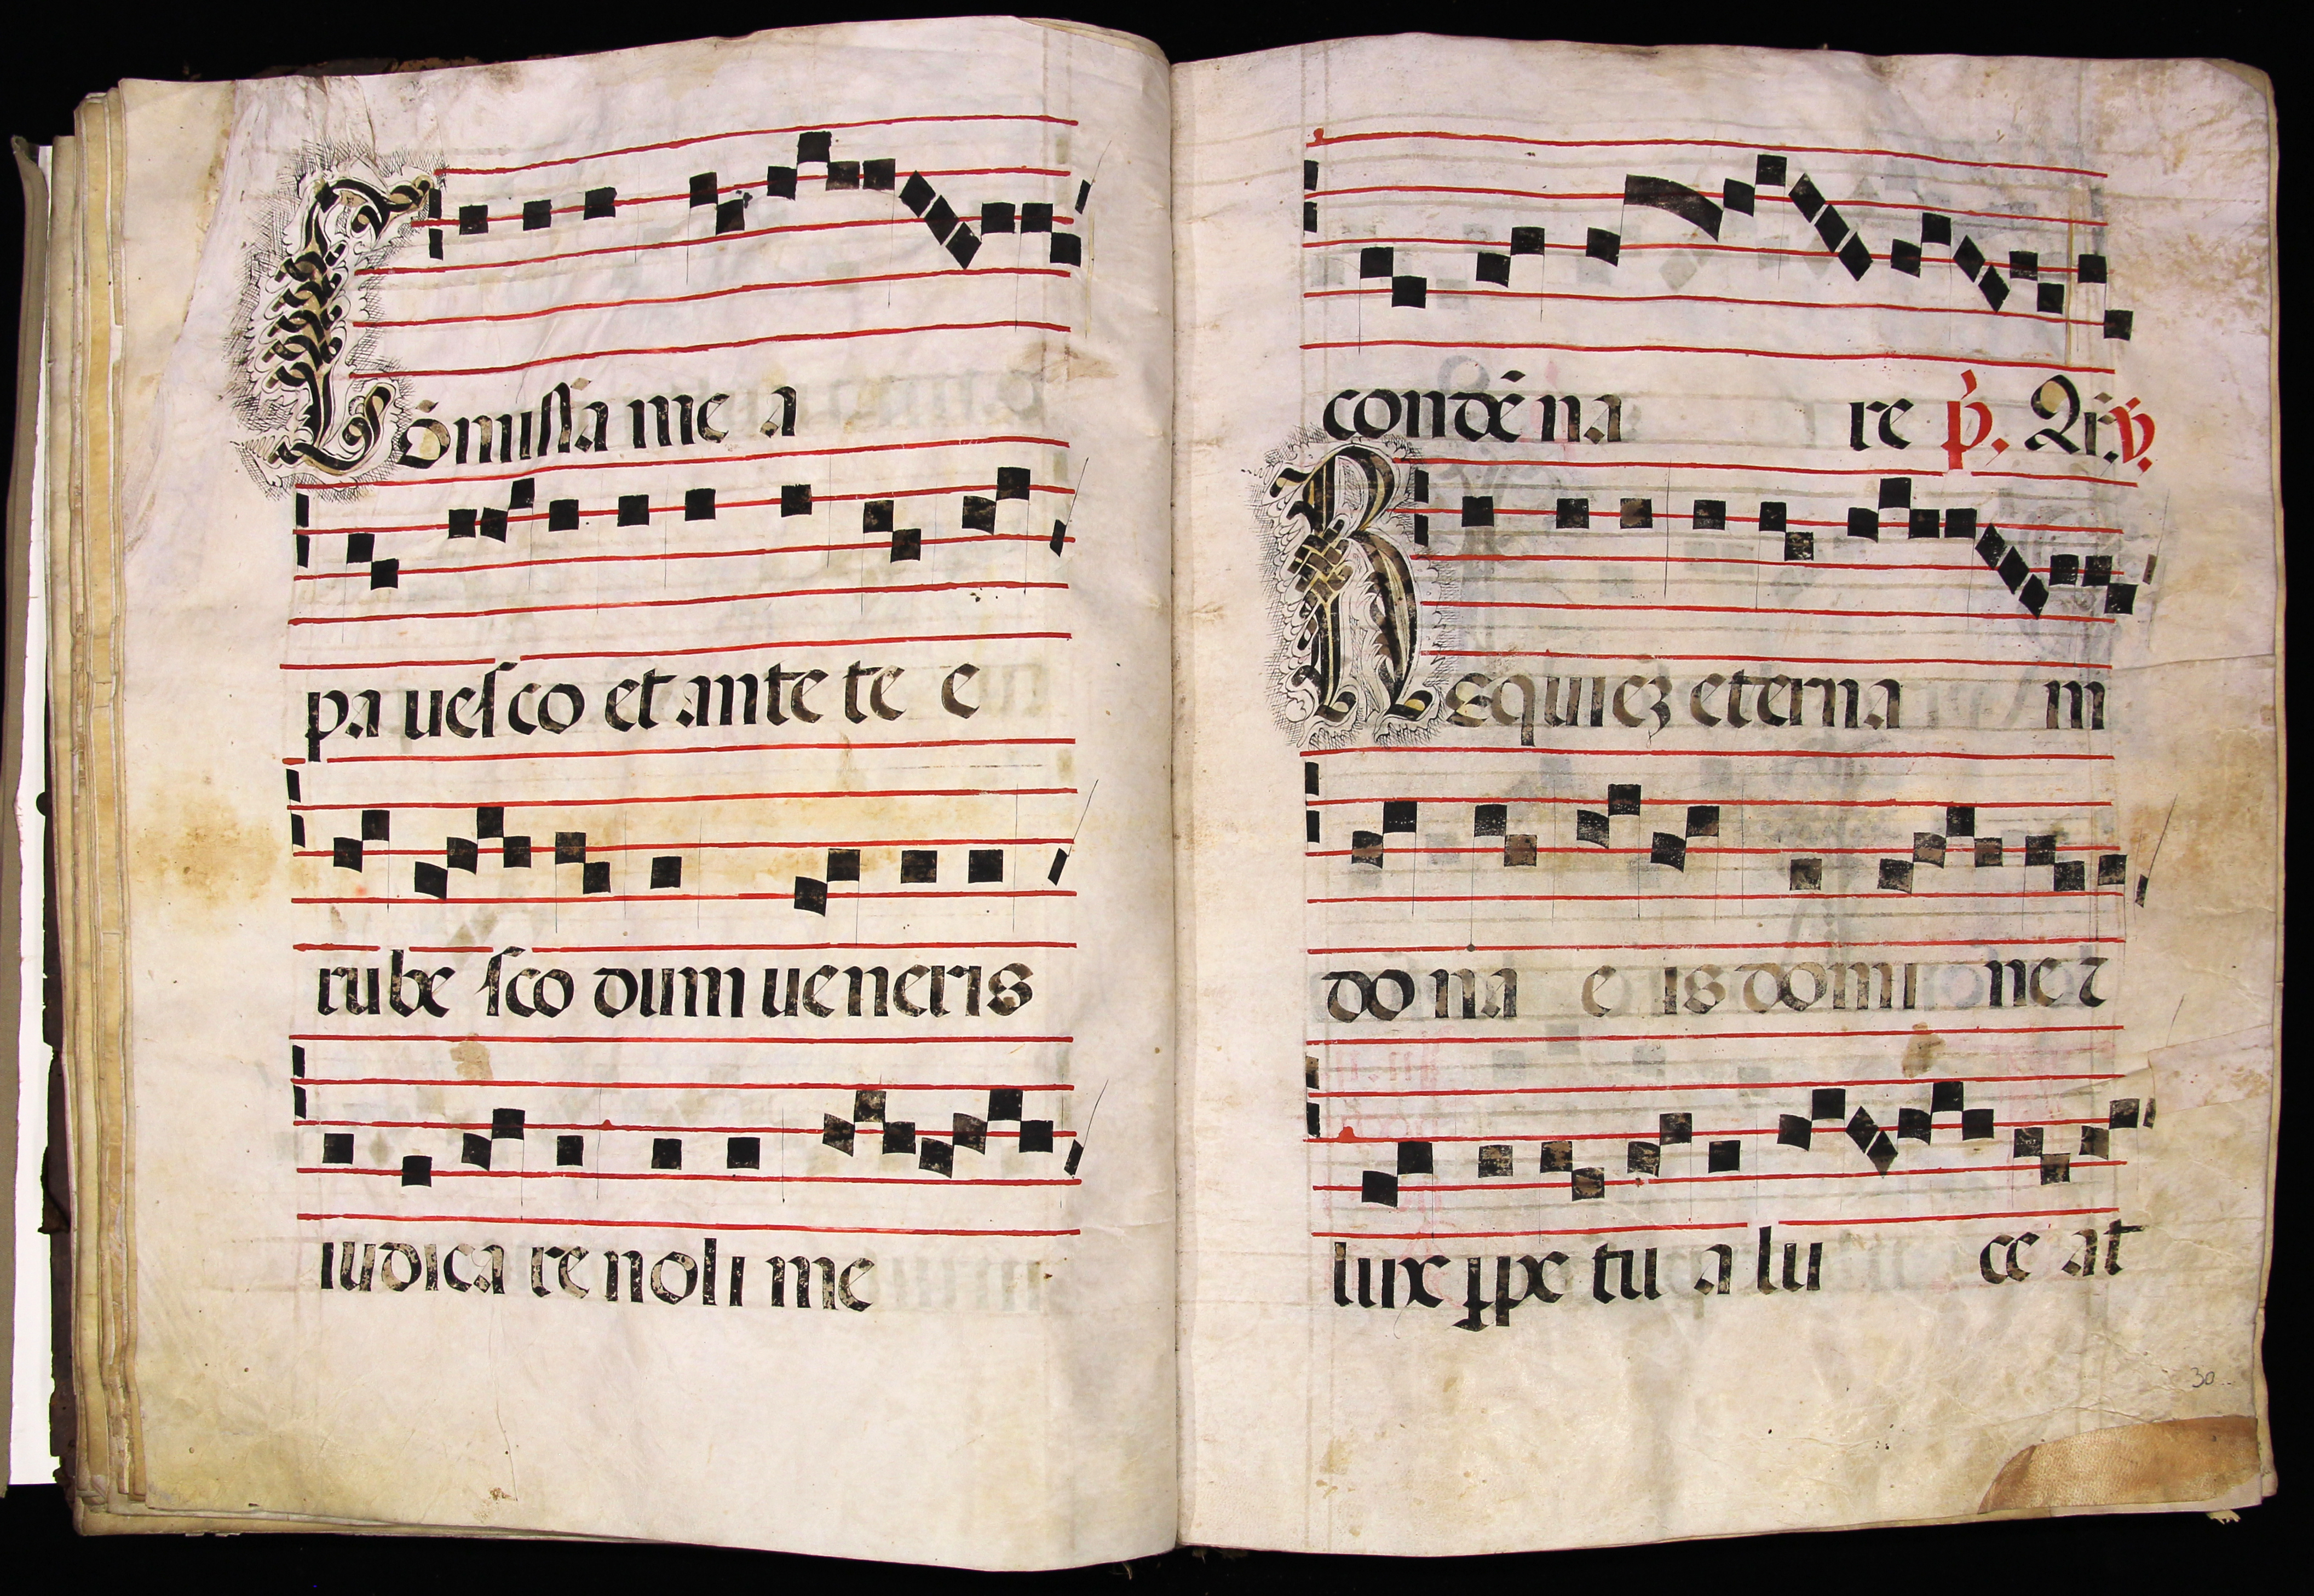 Cōmissa me a
pa uesco et ante te e
rube sco dum ueneris
iudica re noli me
condē na re p̄. Qr̄. ℣.
Requiez eterna m
do na e is domi ne ⁊
luxe ꝑpe tu a lu ce at
30